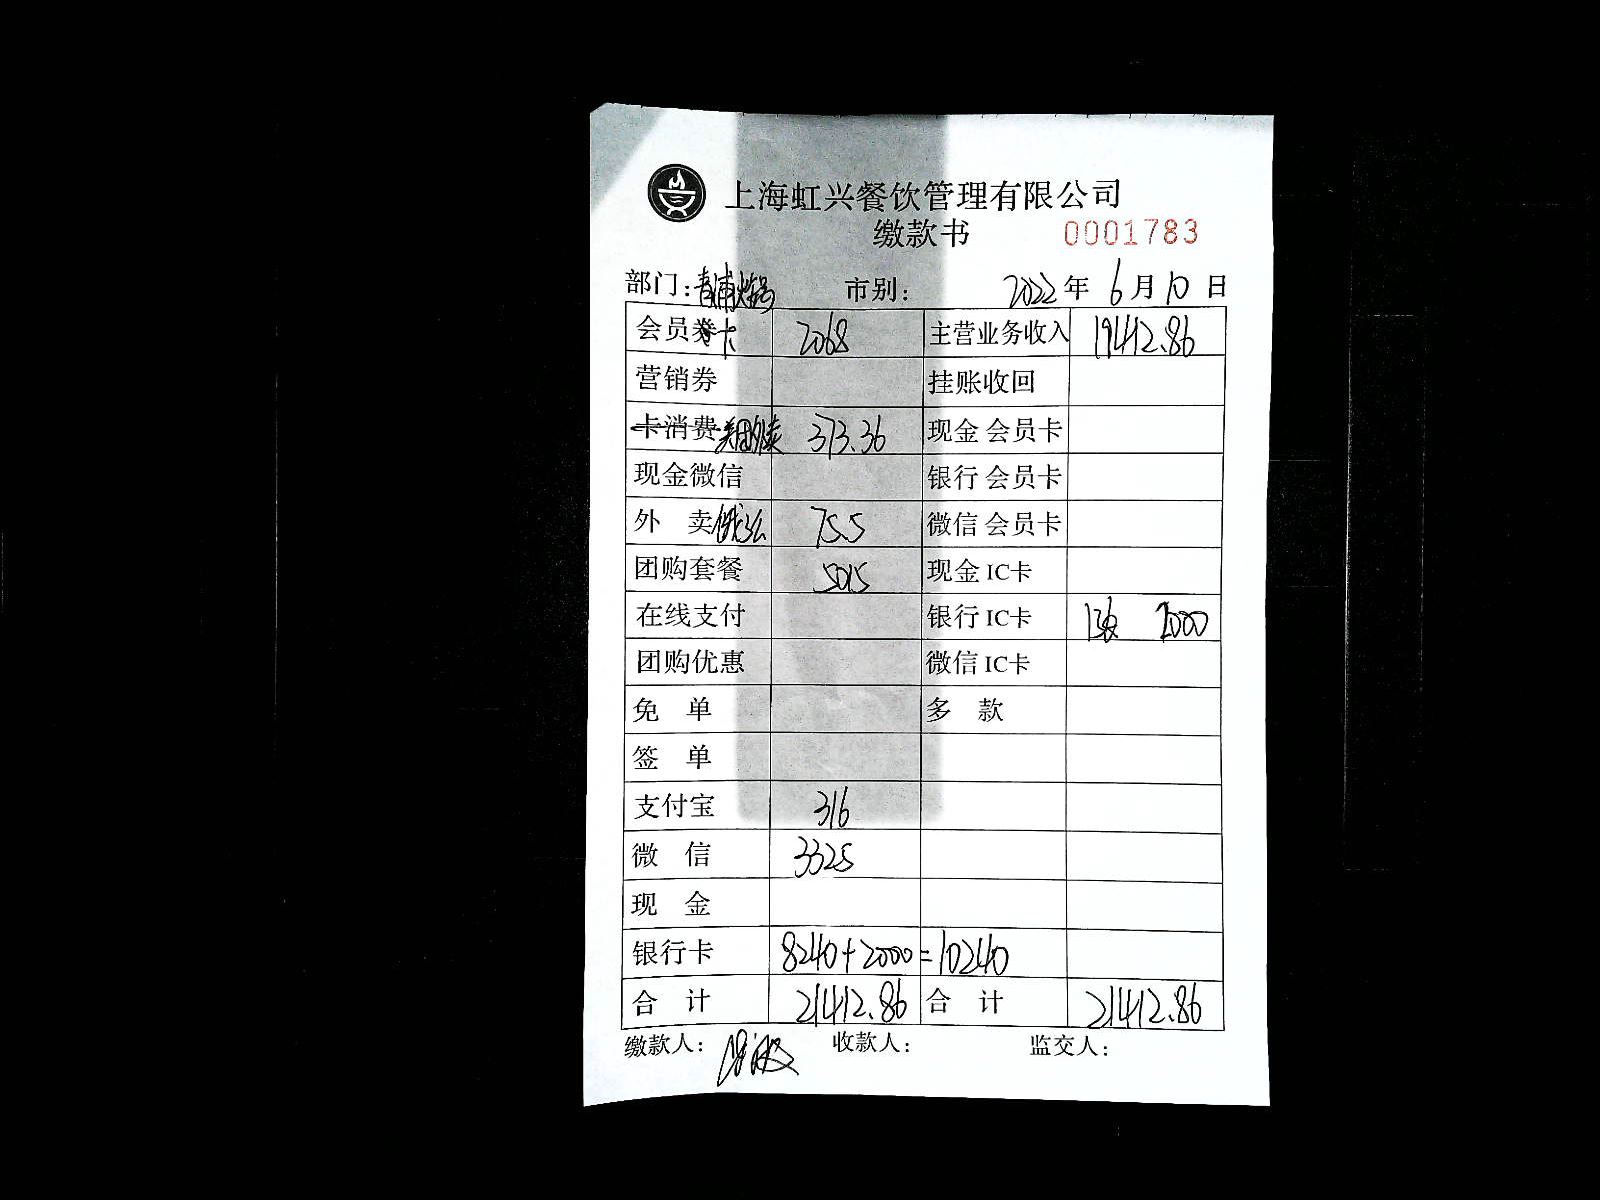 上海虹兴餐饮管理有限公司
缴款书 0001783
部门:青浦火锅 市别: 2022年 6月10日
会员券卡 2068 主营业务收入 19412.86
营销券 挂账收回
卡消费美团外卖 373.36 现金 会员卡
现金微信 银行 会员卡
外 卖饿了么 75.5 微信 会员卡
团购套餐 5015 现金 IC卡
在线支付 银行 IC卡 2000
团购优惠 微信 IC卡
免 单 多 款
签 单
支付宝 316
微 信 3325
现 金
银行卡 8240+2000=10240
合 计 21412.86 合 计 21412.86
缴款人: 收款人: 监交人: